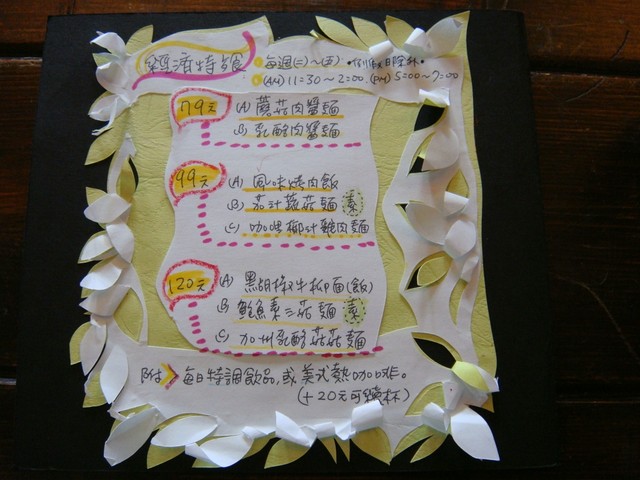 經濟特餐 •每週(二)~(五) •例假日除外•
•(AM) 11=30~2=00 (PM) 5=00~7=00
79元 (A) 蘑菇肉醬麵
(B) 乳酪肉醬麵
99元 (A) 風味烤肉飯
(B) 茄汁蘑菇麵 素
(C) 咖哩椰汁雞肉麵
120元 (A) 黑胡椒牛柳面(飯)
(B) 鮑魚素三菇麵 素
(C) 加州乳酪菇菇麵
附> 每日特調飲品,或美式熱咖啡。
(+20元可續杯)